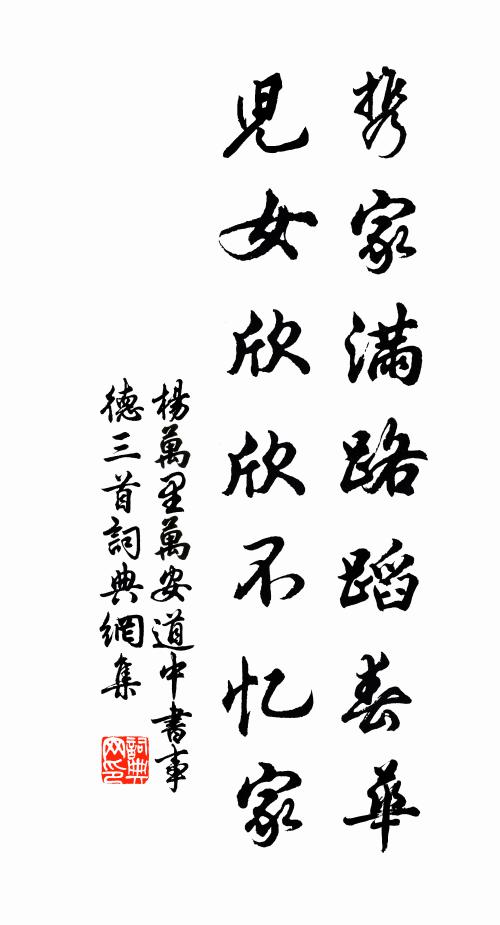 携家满路蹈春華
児女欣欣不忆家
楊萬里萬安道中書事
德三首詞典網集
詞典网印